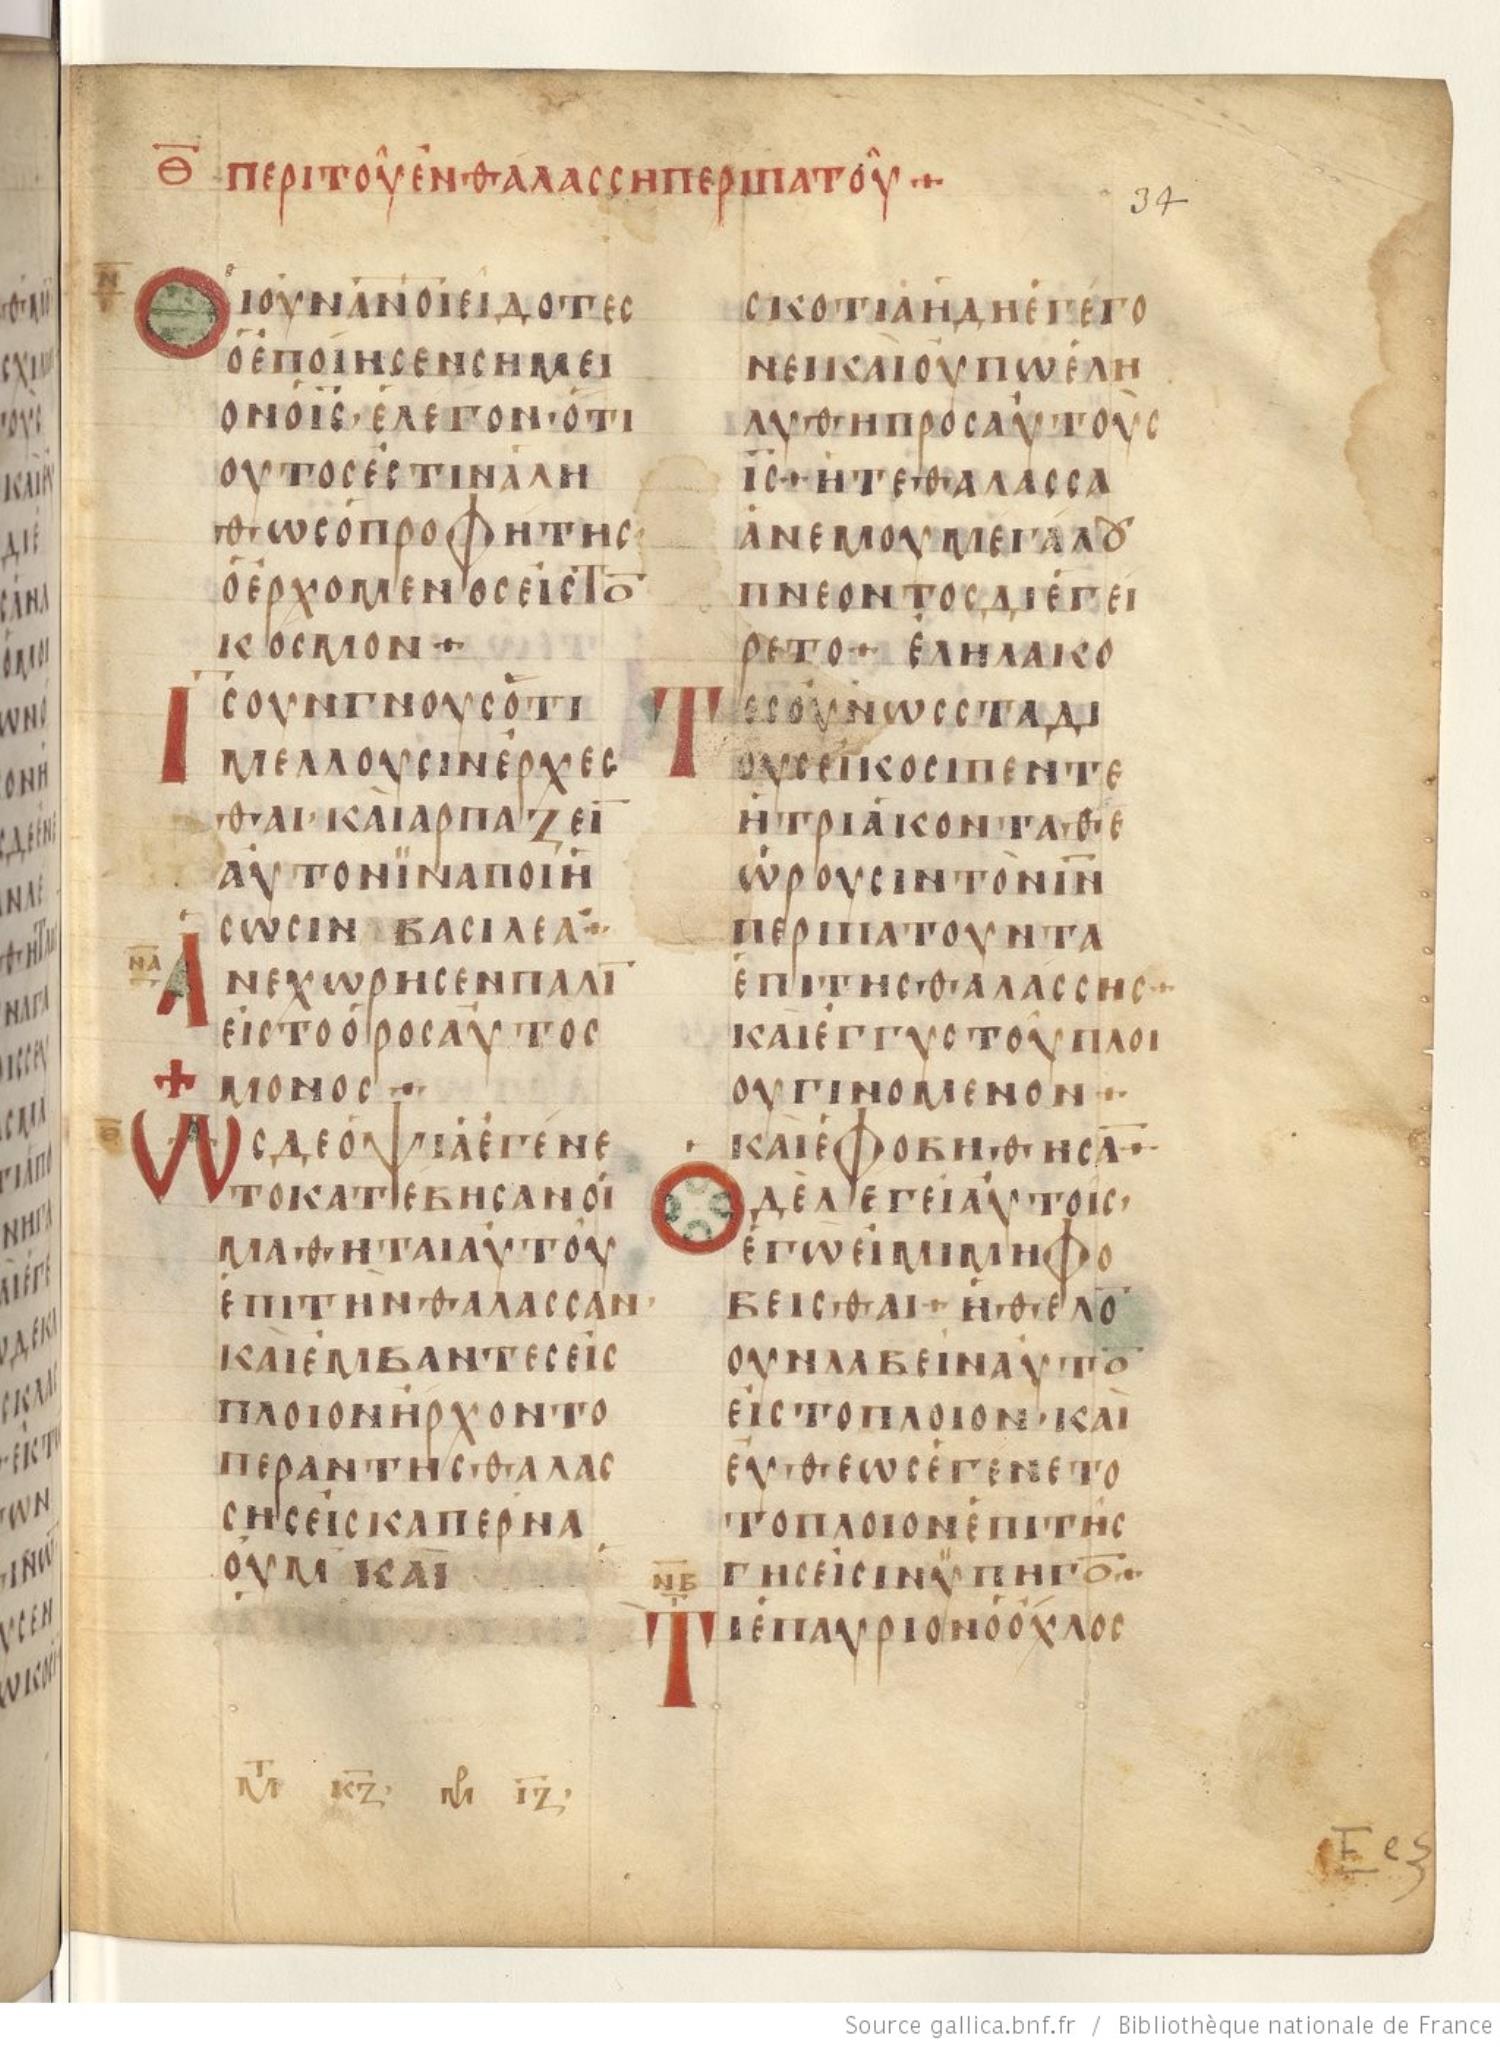 Θ ΠΕΡΙ ΤΟΥ ΕΝ ΘΑΛΑССΗ ΠΕΡΙΠΑΤΟΥ+
34
Ν
ΟΙΟΥΝΑΝΟΙΕΙΔΟΤΕС
ΟΕΠΟΙΗСΕΝСΗΜΕΙ
ΟΝΟΙС·ΕΛΕΓΟΝ·ΟΤΙ
ΟΥΤΟСΕСΤΙΝΑΛΗ
ΘΩСΟΠΡΟΦΗΤΗС
ΟΕΡΧΟΜΕΝΟСΕΙСΤΟ̅
ΚΟСΜΟΝ+
ΙСΟΥΝΓΝΟΥСΟΤΙ
ΜΕΛΛΟΥСΙΝΕΡΧΕС
ΘΑΙ·ΚΑΙΑΡΠΑΖΕΙ̅
ΑΥΤΟΝΪΝΑΠΟΙΗ
СΩСΙΝ ΒΑСΙΛΕΑ+
ΝΑ
ΑΝΕΧΩΡΗСΕΝΠΑΛΙ̅
ΕΙСΤΟΟΡΟСΑΥΤΟС
+ ΜΟΝΟС+
ΩСΔΕΟΨΙΑΕΓΕΝΕ
ΤΟΚΑΤΕΒΗСΑΝΟΙ
ΜΑΘΗΤΑΙΑΥΤΟΥ
ΕΠΙΤΗΝΘΑΛΑССΑΝ·
ΚΑΙΕΜΒΑΝΤΕСΕΙС
ΠΛΟΙΟΝΗΡΧΟΝΤΟ
ΠΕΡΑΝΤΗСΘΑΛΑС
СΗСΕΙСΚΑΠΕΡΝΑ
ΟΥΜ ΚΑΙ
СΚΟΤΙΑΗΔΗΕΓΕΓΟ
ΝΕΙΚΑΙΟΥΠΩΕΛΗ
ΛΥΘΗΠΡΟСΑΥΤΟΥС
Ι̅С̅+ΗΤΕΘΑΛΑССΑ
ΑΝΕΜΟΥΜΕΓΑΛȢ
ΠΝΕΟΝΤΟСΔΙΕΓΕΙ
ΡΕΤΟ+ ΕΛΗΛΑΚΟ
ΤΕСΟΥΝΩССΤΑΔΙ
ΟΥСΕΙΚΟСΙΠΕΝΤΕ
ΗΤΡΙΑΚΟΝΤΑΘΕ
ΩΡΟΥСΙΝΤΟΝΙ̅Ν̅
ΠΕΡΙΠΑΤΟΥΝΤΑ
ΕΠΙΤΗСΘΑΛΑССΗС+
ΚΑΙΕΓΓΥСΤΟΥΠΛΟΙ
ΟΥΓΙΝΟΜΕΝΟΝ+
ΚΑΙΕΦΟΒΗΘΗСΑ̅+
ΟΔΕΛΕΓΕΙΑΥΤΟΙС·
ΕΓΩΕΙΜΙΜΗΦΟ
ΒΕΙСΘΑΙ+ ΗΘΕΛΟ̅
ΟΥΝΛΑΒΕΙΝΑΥΤΟ̅
ΕΙСΤΟΠΛΟΙΟΝ·ΚΑΙ
ΕΥΘΕΩСΕΓΕΝΕΤΟ
ΤΟΠΛΟΙΟΝΕΠΙΤΗС
ΓΗСΕΙСΙΝΫΠΗΓΟ̅+
ΝΒ
ΤΙΕΠΑΥΡΙΟΝΟΟΧΛΟС
ΚΖ ΙΖ
Source gallica.bnf.fr / Bibliothèque nationale de France